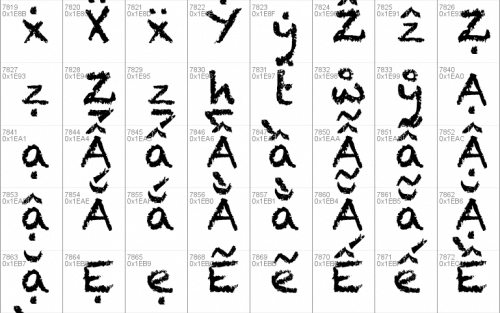 7819 7820 7821 7822 7823 7824 7825 7826
0x1E8B 0x1E8C 0x1E8D 0x1E8E 0x1E8F 0x1E90 0x1E91 0x1E92
ẋ Ẍ ẍ Ẏ ẏ Ẑ ẑ Ẓ
7827 7828 7829 7830 7831 7832 7833 7840
0x1E93 0x1E94 0x1E95 0x1E96 0x1E97 0x1E98 0x1E99 0x1EA0
ẓ Ẕ ẕ ẖ ẗ ẘ ẙ Ạ
7841 7844 7845 7846 7847 7850 7851 7852
0x1EA1 0x1EA4 0x1EA5 0x1EA6 0x1EA7 0x1EAA 0x1EAB 0x1EAC
ạ Ấ ấ Ầ ầ Ẫ ẫ Ậ
7853 7854 7855 7856 7857 7860 7861 7862
0x1EAD 0x1EAE 0x1EAF 0x1EB0 0x1EB1 0x1EB4 0x1EB5 0x1EB6
ậ Ắ ắ Ằ ằ Ẵ ẵ Ặ
7863 7864 7865 7868 7869 7870 7871 7872
0x1EB7 0x1EB8 0x1EB9 0x1EBC 0x1EBD 0x1EBE 0x1EBF 0x1EC0
ặ Ẹ ẹ Ẽ ẽ Ế ế Ề